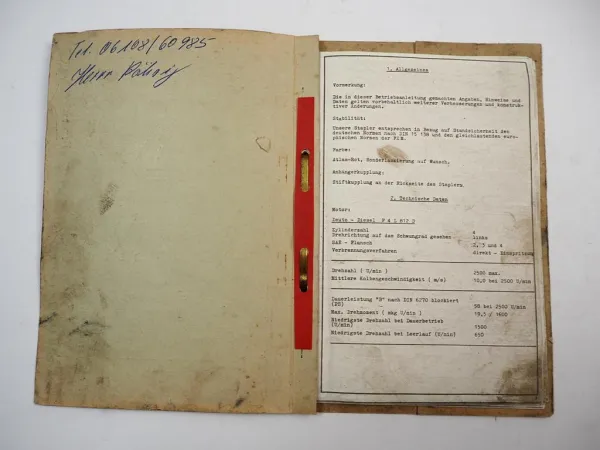 Tel. 06108/60985
Herr
1. Allgemeines
Vorwerkung:
Die in dieser Betriebsanleitung gemachten Angaben, Hinweise und
Daten gelten vorbehaltlich weiterer Verbesserungen und konstruk-
tiver Änderungen.
Stabilität:
Unsere Stapler entsprechen in Bezug auf Standsicherheit den
deutschen Normen nach DIN 15 138 und den gleichlautenden euro-
päischen Normen der FEM.
Farbe:
Atlas-Rot, Sonderlackierung auf Wunsch.
Anhängerkupplung:
Stiftkupplung an der Rückseite des Staplers.
2. Technische Daten
Motor:
Deutz - Diesel F 4 L 812 D
Zylinderzahl 4
Drehrichtung auf das Schwungrad gesehen links
SAE - Flansch 2, 3 und 4
Verbrennungsverfahren direkt - Einspritzung
Drehzahl ( U/min ) 2500 max.
Mittlere Kolbengeschwindigkeit ( m/s) 10,0 bei 2500 U/min
Dauerleistung "B" nach DIN 6270 blockiert
(PS) 58 bei 2500 U/min
Max. Drehmoment ( mkg U/min ) 19,5 / 1600
Niedrigste Drehzahl bei Dauerbetrieb
(U/min) 1500
Niedrigste Drehzahl bei Leerlauf (U/min) 650